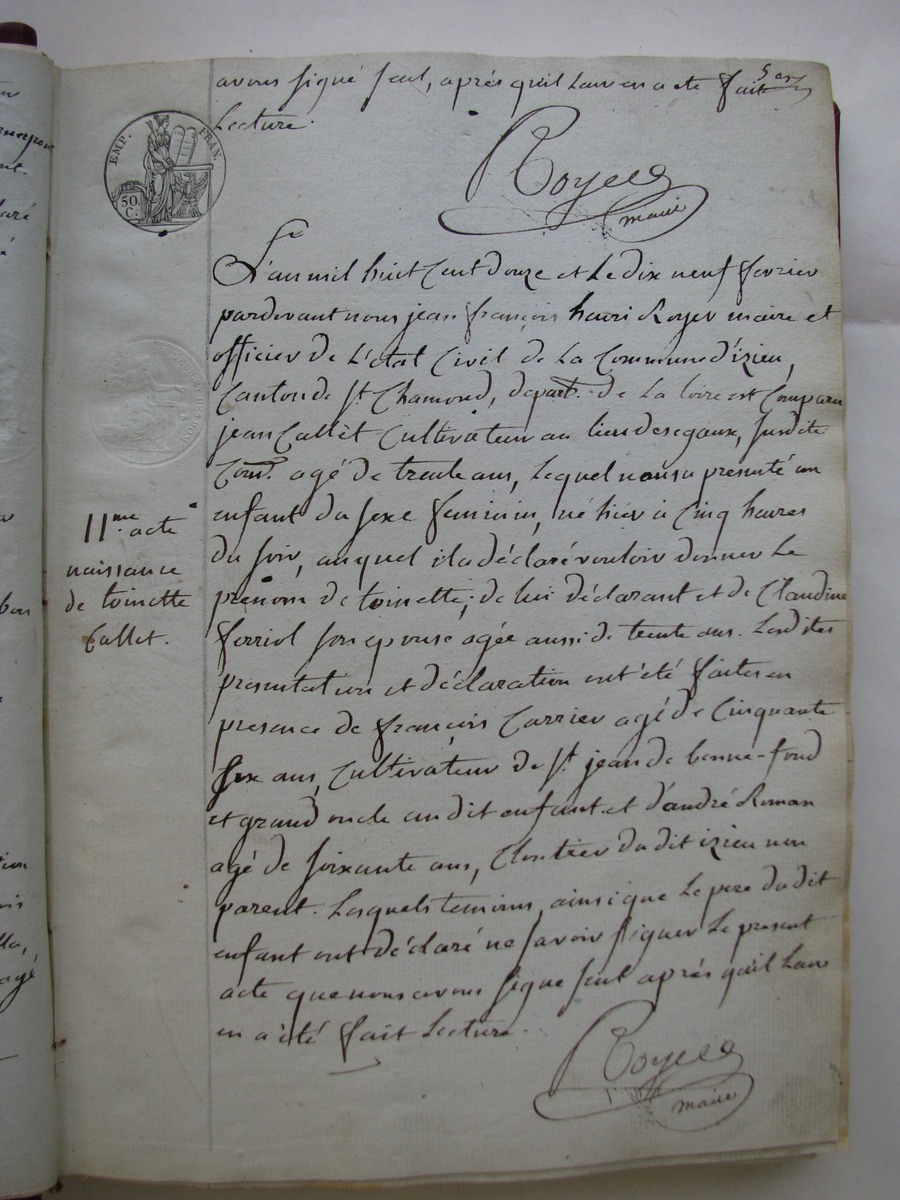 avons signé seul, après qu'il leur en a été fait
Lecture.
EMP. FRAN.
50.
C.
Royer
maire
L'an mil huit Cent douze et Le dix neuf fevrier
pardevant nous jean françois henri Royer maire et
officier de L'état Civil de La Commune d'izieu,
Canton de St. Chamond, départ. de La loire est Comparu
jean Callet Cultivateur au lieu des egaux, susdite
Com. agé de trente ans, Lequel nous a presenté un
enfant du sexe feminin, né hier à Cinq heures
du soir, auquel il a déclaré vouloir donner Le
prenom de toinette; de lui déclarant et de Claudine
ferriol son epouse agée aussi de trente ans. Lesdites
presentation et déclaration ont été faites en
presence de françois Carrier agé de Cinquante
six ans, Cultivateur de St. jean de bonne-fond
et grand oncle audit enfant et d'andré Roman
agé de soixante ans, Cloutier dudit izieu non
parent. Lesquels temoins, ainsi que Le pere dudit
enfant ont déclaré ne savoir signer Le present
acte que nous avons signé seul après qu'il Leur
en a été fait Lecture.
Royer
maire
11me acte
naissance
de toinette
Callet.